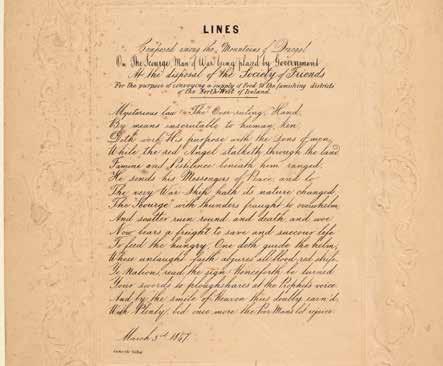 LINES
Composed among the Mountains of Donegal
On The Scourge, Man of War being placed by Government
At the disposal of the Society of Friends
For the purpose of conveying a supply of Food to the famishing districts
of the North-West of Ireland.
Mysterious law! The Over-ruling Hand,
By means inscrutable to human ken
Doth work His purpose with the Sons of men,
While the red Angel stalketh through the land
Famine and Pestilence beneath him ranged,
He sends his Messengers of Peace, and lo
The very War Ship hath its nature changed,
The "Scourge" with thunders fraught to overwhelm
And scatter ruin round and death, and woe
Now bears a freight to save and succour life
To feed the hungry. One doth guide the helm,
Whose untaught faith abjures all blood-red strife.
Ye Nations, read the sign. Henceforth be turned
Your swords to ploughshares at the Prophet's voice
And by the smile of Heaven thus doubly earn'd,
With Plenty, bid once more the Poor Man's lot rejoice.
March 3rd 1847